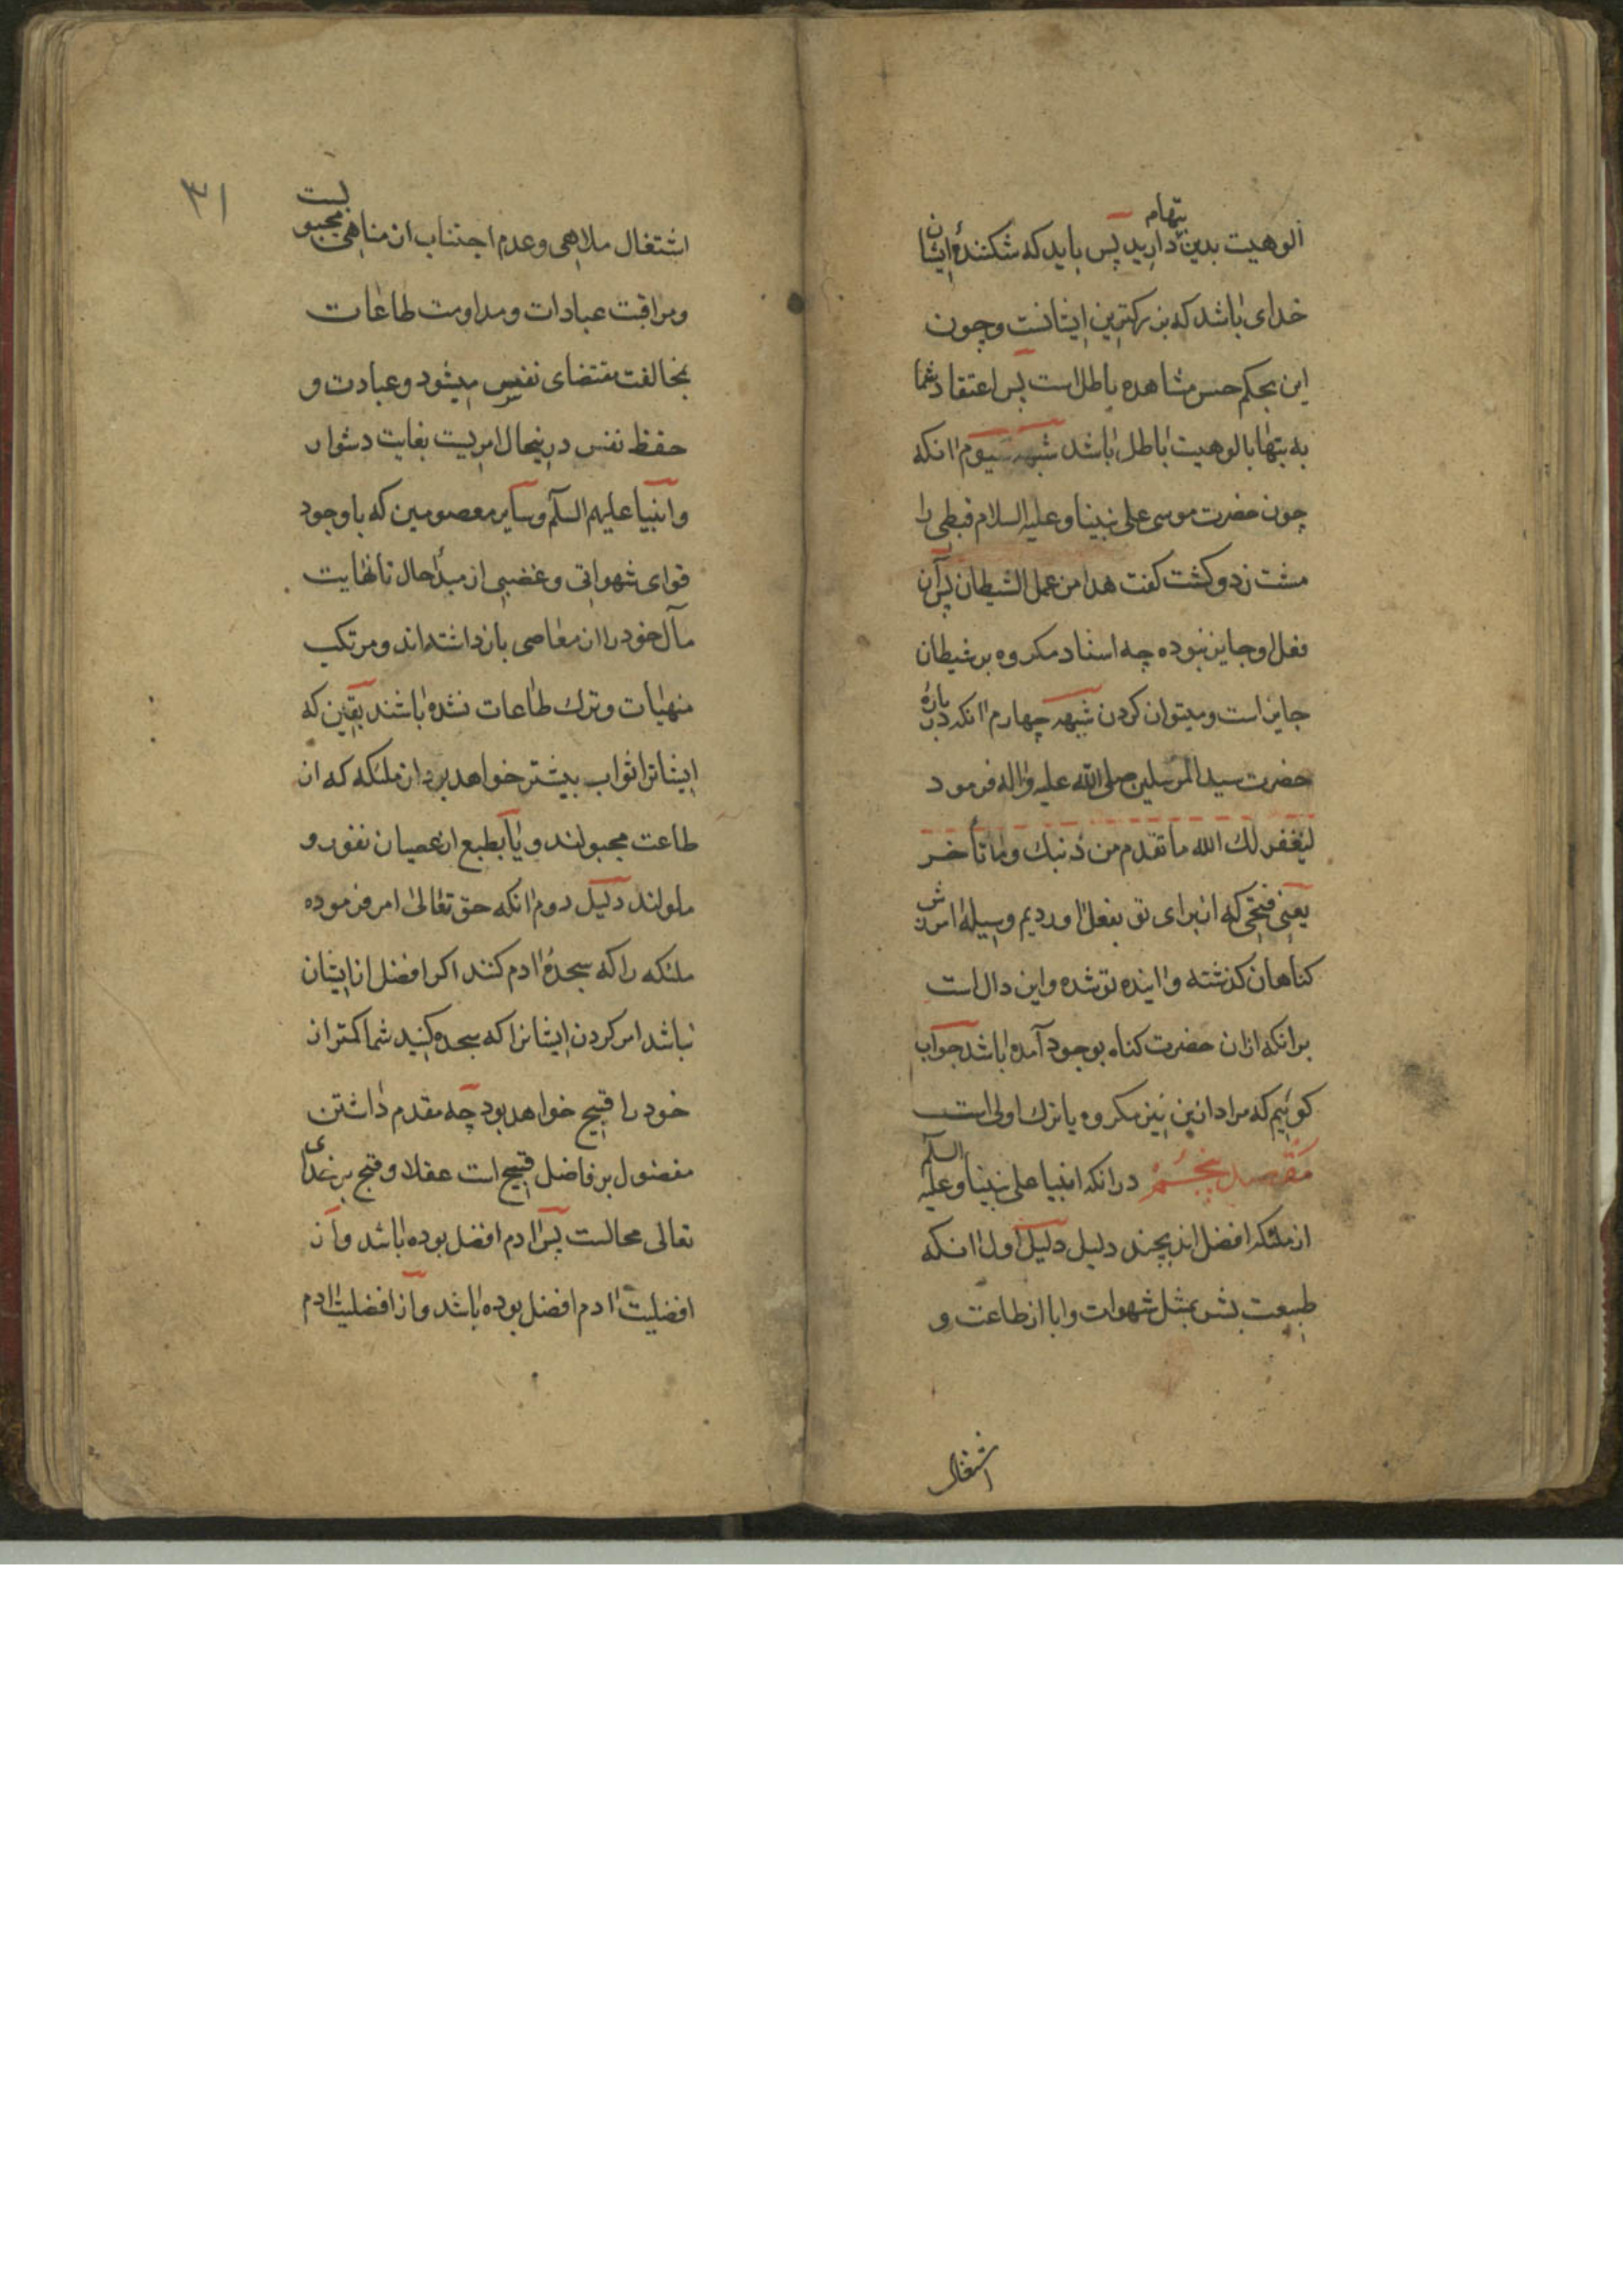 الوهیت بدین بتهام دارید پس باید که شکنندهٔ ایشان
خدای باشد که بزرکترین ایشانست و چون
این بحکم حس مشاهده باطل است پس اعتقاد شما
به بتها بالوهیت باطل باشد شبهه سیوم انکه
چون حضرت موسی علی نبینا و علیه السلام قبطی را
مشت زد و کشت کفت هدا من عمل الشیطان پس آن
فعل او جایز نبوده چه اسناد مکروه بر شیطان
جایز است و میتوان کردن شبهه چهارم انکه در بارهٔ
حضرت سید المرسلین صلی الله علیه و اله فرمود
لیغفر لك الله ما تقدم من ذنبك و ما تأخر
یعنی فتحی که از برای تو بفعل اوردیم وسیلهٔ امرزش
کناهان کذشته و اینده تو شده و این دال است
بر انکه ازان حضرت کناه بوجود آمده باشد جواب
کوئیم که مراد ازین نیز مکروه یا ترك اولی است
مقصد پنجم در انکه انبیا علی نبینا و علیه السلم
از ملئکه افضل اند بچند دلیل دلیل اول انکه
طبیعت بشر بمثل شهوات و ابا از طاعت و
اشتغال
۳۱
اشتغال ملاهی و عدم اجتناب از مناهی مجبولست
و مراقبت عبادات و مداومت طاعات
بخالفت مقتضای نفس میشود و عبادت و
حفظ نفس درینحال امریست بغایت دشوار
و انبیا علیهم السلم و سایر معصومین که با وجود
قوای شهوانی و غضبی از مبدأ حال تا نهایت
مآل خود را از معاصی باز داشته اند و مرتکب
منهیات و ترك طاعات نشده باشند یقین که
ایشانرا ثواب بیشتر خواهد بود از ملئکه که ان
طاعت مجبولند و یا بطبع از عصیان نفور و
ملولند دلیل دوم انکه حق تعالی امر فرموده
ملئکه را که سجدهٔ ادم کنند اکر افضل از ایشان
نباشد امر کردن ایشانرا که سجده کنید شما کمتر از
خود را قبیح خواهد بود چه مقدم داشتن
مفضول بر فاضل قبیح است عقلا و قبح بر خدای
تعالی محالست پس ادم افضل بوده باشد و از
افضلیت ادم افضل بوده باشد و از افضلیت ادم